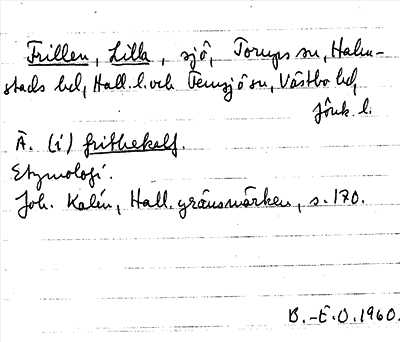 Frillen, Lilla, sjö, Torups sn, Halm-
stads hd, Hall. l. och Femsjö sn, Västbo hd,
Jönk. l.
Ä. (i) frithekalf.
Etymologi.
Joh. Kalén, Hall. gränsmärken, s. 170.
B.-E.O. 1960.